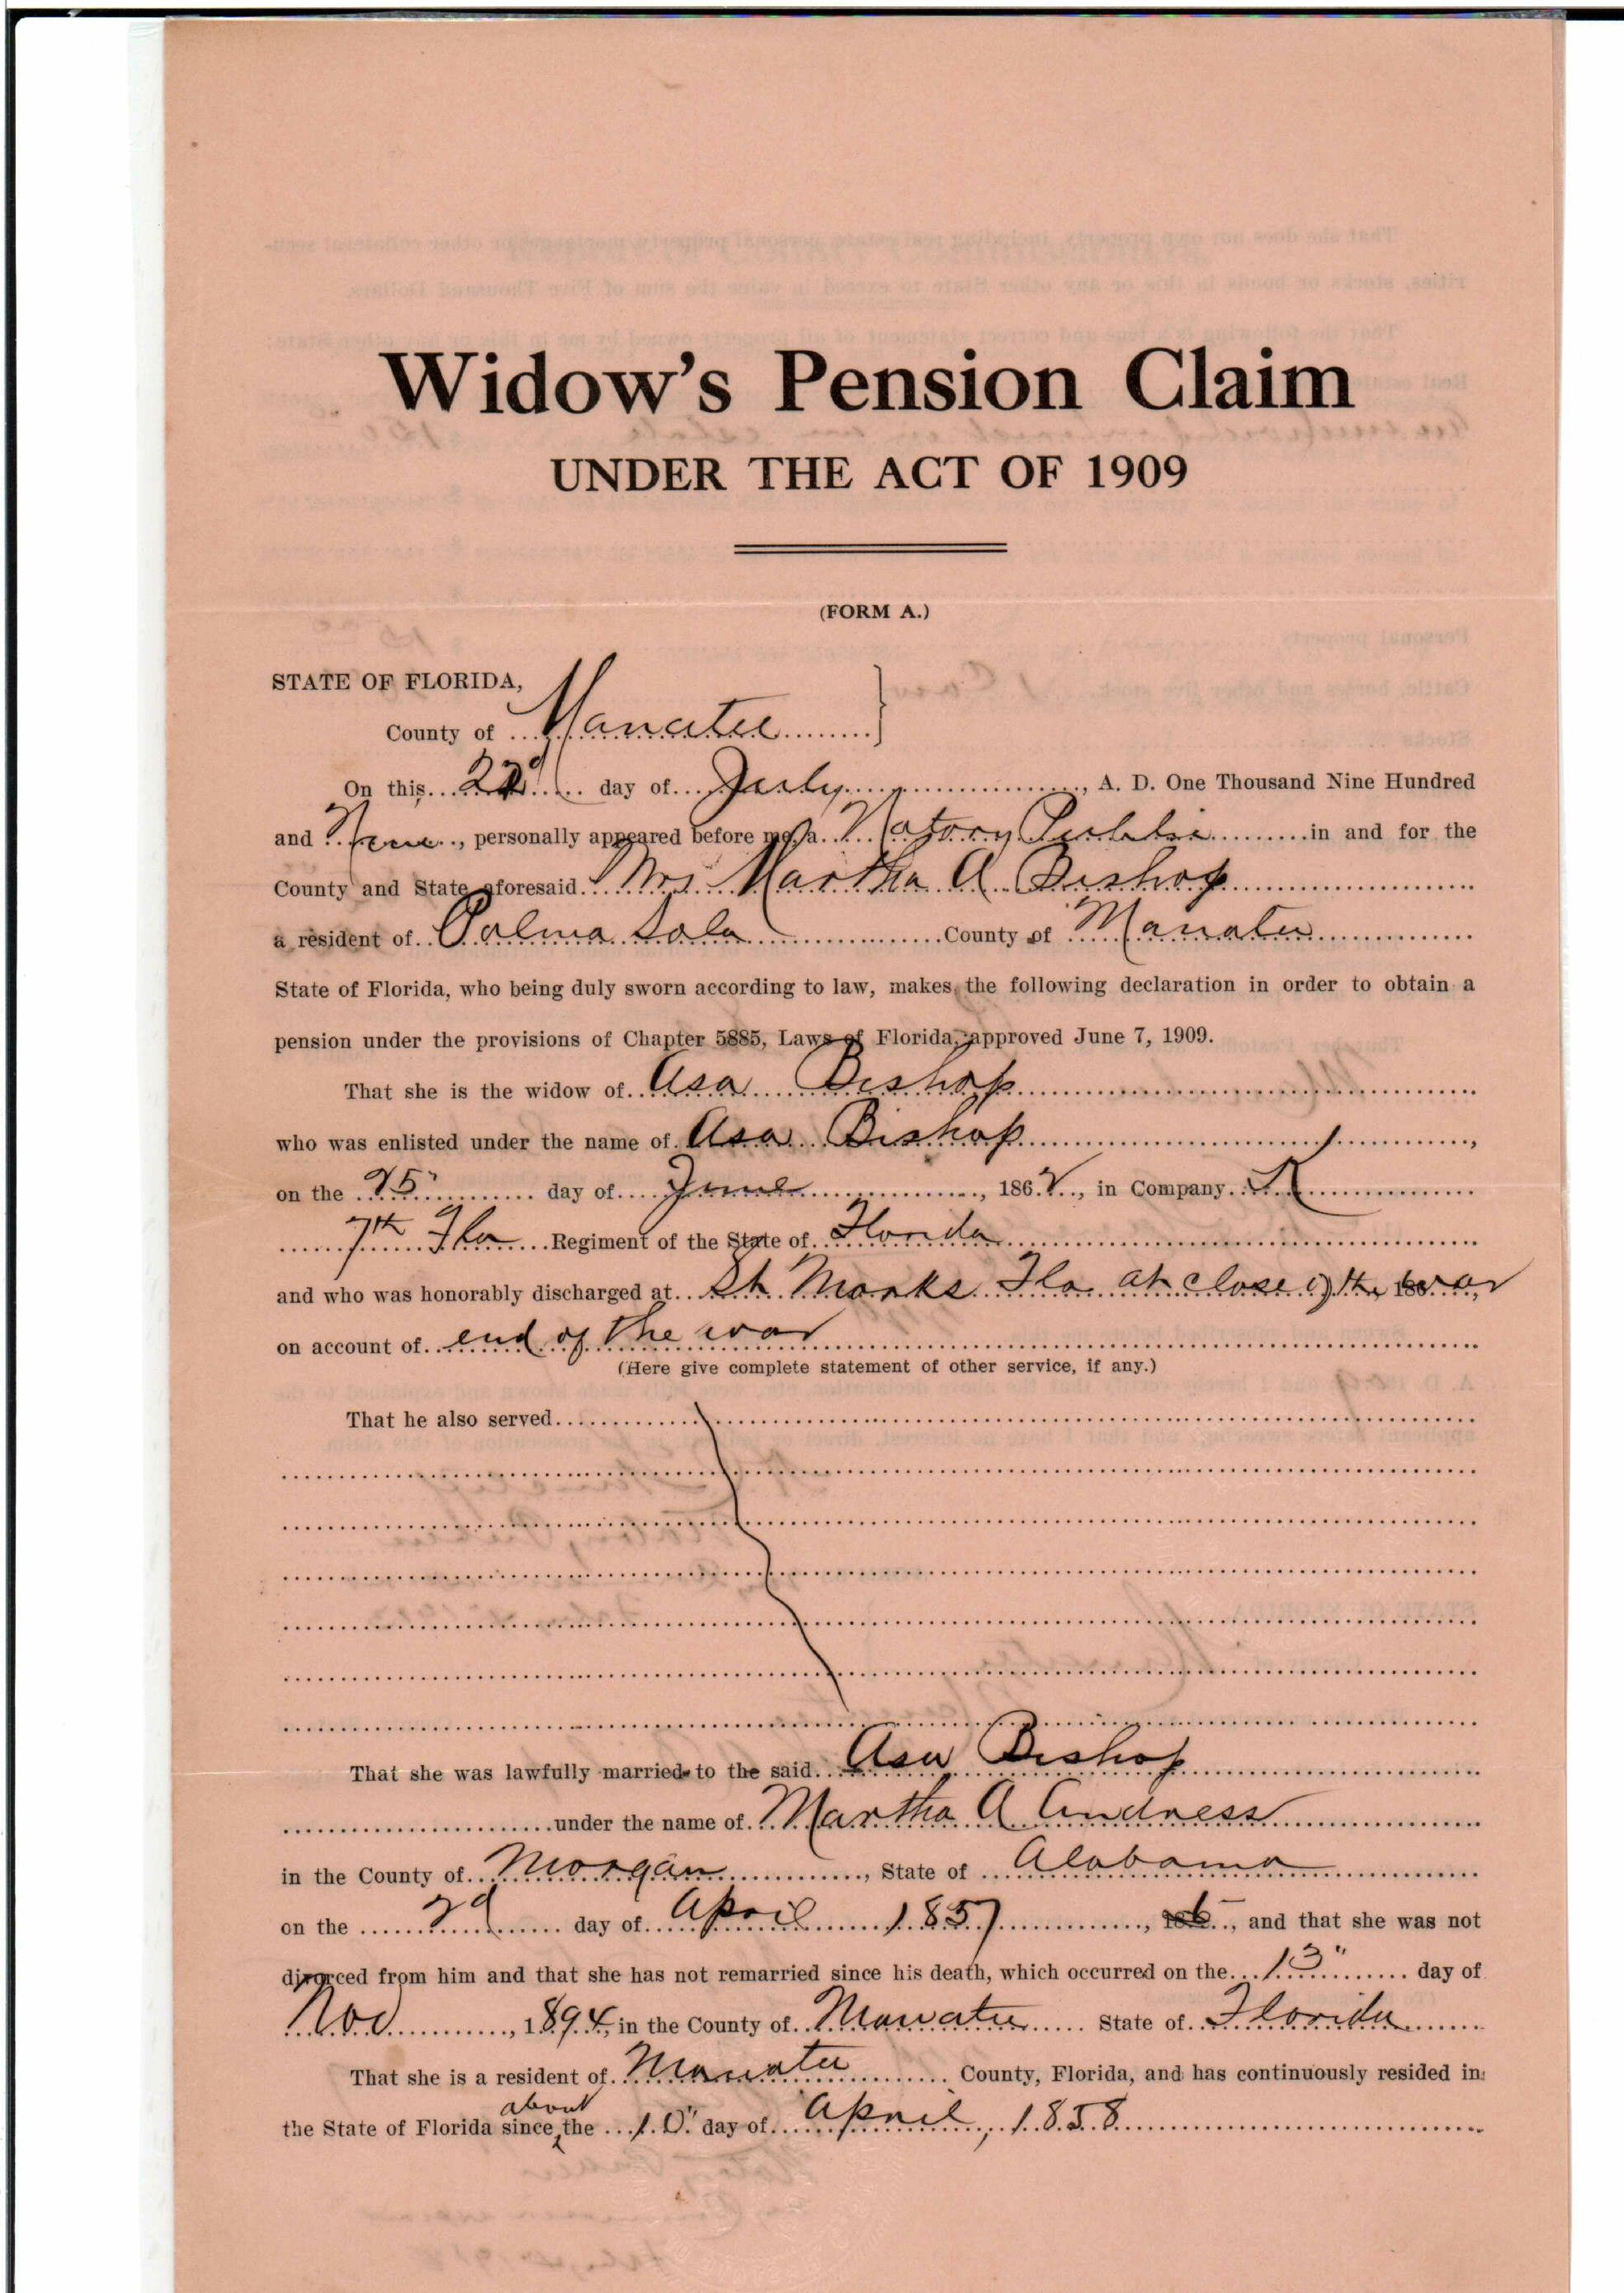 Widow's Pension Claim
UNDER THE ACT OF 1909
(FORM A.)
STATE OF FLORIDA,
County of Manatee
On this 22d day of July, A. D. One Thousand Nine Hundred
and Nine, personally appeared before me, a Notary Public in and for the
County and State aforesaid Mrs Martha A Bishop
a resident of Palma Sola County of Manatee
State of Florida, who being duly sworn according to law, makes the following declaration in order to obtain a
pension under the provisions of Chapter 5885, Laws of Florida, approved June 7, 1909.
That she is the widow of Asa Bishop
who was enlisted under the name of Asa Bishop,
on the 25" day of June, 1862, in Company K
7th Fla Regiment of the State of Florida
and who was honorably discharged at St. Marks Fla at close of the war
on account of end of the war
(Here give complete statement of other service, if any.)
That he also served
That she was lawfully married to the said Asa Bishop
under the name of Martha A Andress
in the County of Morgan, State of Alabama
on the 2d day of April 1857, and that she was not
divorced from him and that she has not remarried since his death, which occurred on the 13" day of
Nov, 1894, in the County of Manatee State of Florida
That she is a resident of Manatee County, Florida, and has continuously resided in
the State of Florida since about the 10" day of April, 1858